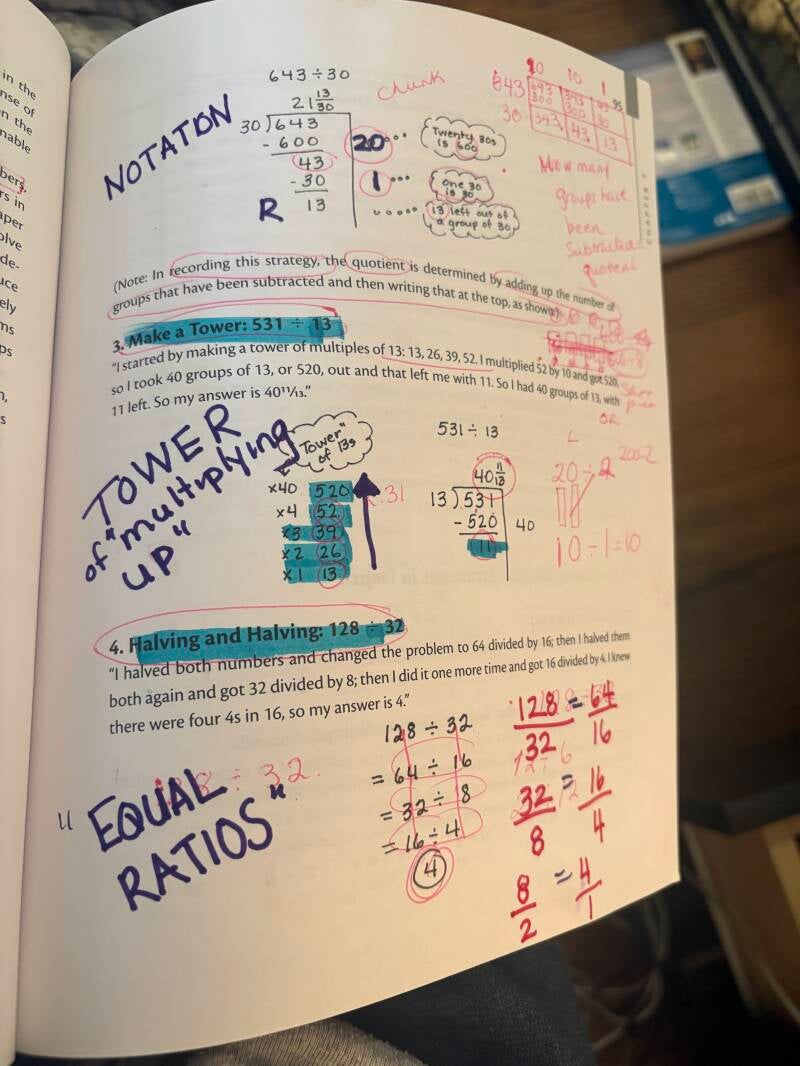 in the
nse of
n the
nable
bers.
rs in
aper
olve
de-
uce
ely
ms
ps
643 ÷ 30
chunk
NOTATION
21 13/30
30)643
- 600
43
- 30
13
R
20...
1...
Twenty 30s
is 600
one 30
is 30
13 left out of
a group of 30
10 10 1
643
30
343 43 13
How many
groups have
been
subtracted-
quotient
CHAPTER 7
(Note: In recording this strategy, the quotient is determined by adding up the number of
groups that have been subtracted and then writing that at the top, as shown.)
3. Make a Tower: 531 ÷ 13
"I started by making a tower of multiples of 13: 13, 26, 39, 52. I multiplied 52 by 10 and got 520,
so I took 40 groups of 13, or 520, out and that left me with 11. So I had 40 groups of 13, with
11 left. So my answer is 40 11/13."
TOWER
of "multiplying
UP"
"Tower"
of 13s
x40 520
x4 52
x3 39
x2 26
x1 13
531 ÷ 13
40 11/13
13)531
- 520 40
11
OR
20 ÷ 2
200÷2
10 ÷ 1 = 10
4. Halving and Halving: 128 ÷ 32
"I halved both numbers and changed the problem to 64 divided by 16; then I halved them
both again and got 32 divided by 8; then I did it one more time and got 16 divided by 4. I knew
there were four 4s in 16, so my answer is 4."
128 ÷ 32
= 64 ÷ 16
= 32 ÷ 8
= 16 ÷ 4
4
"EQUAL
RATIOS"
128/32 = 64/16
32/8 = 16/4
8/2 = 4/1